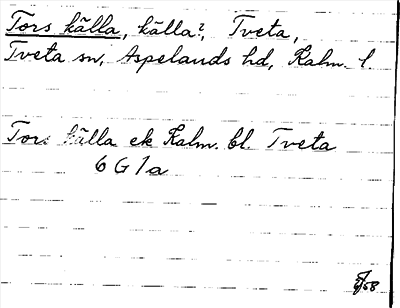 Tors källa, källa?, Tveta,
Tveta sn, Aspelands hd, Kalm. l.
Tors källa ek Kalm. bl. Tveta
6 G 1 a